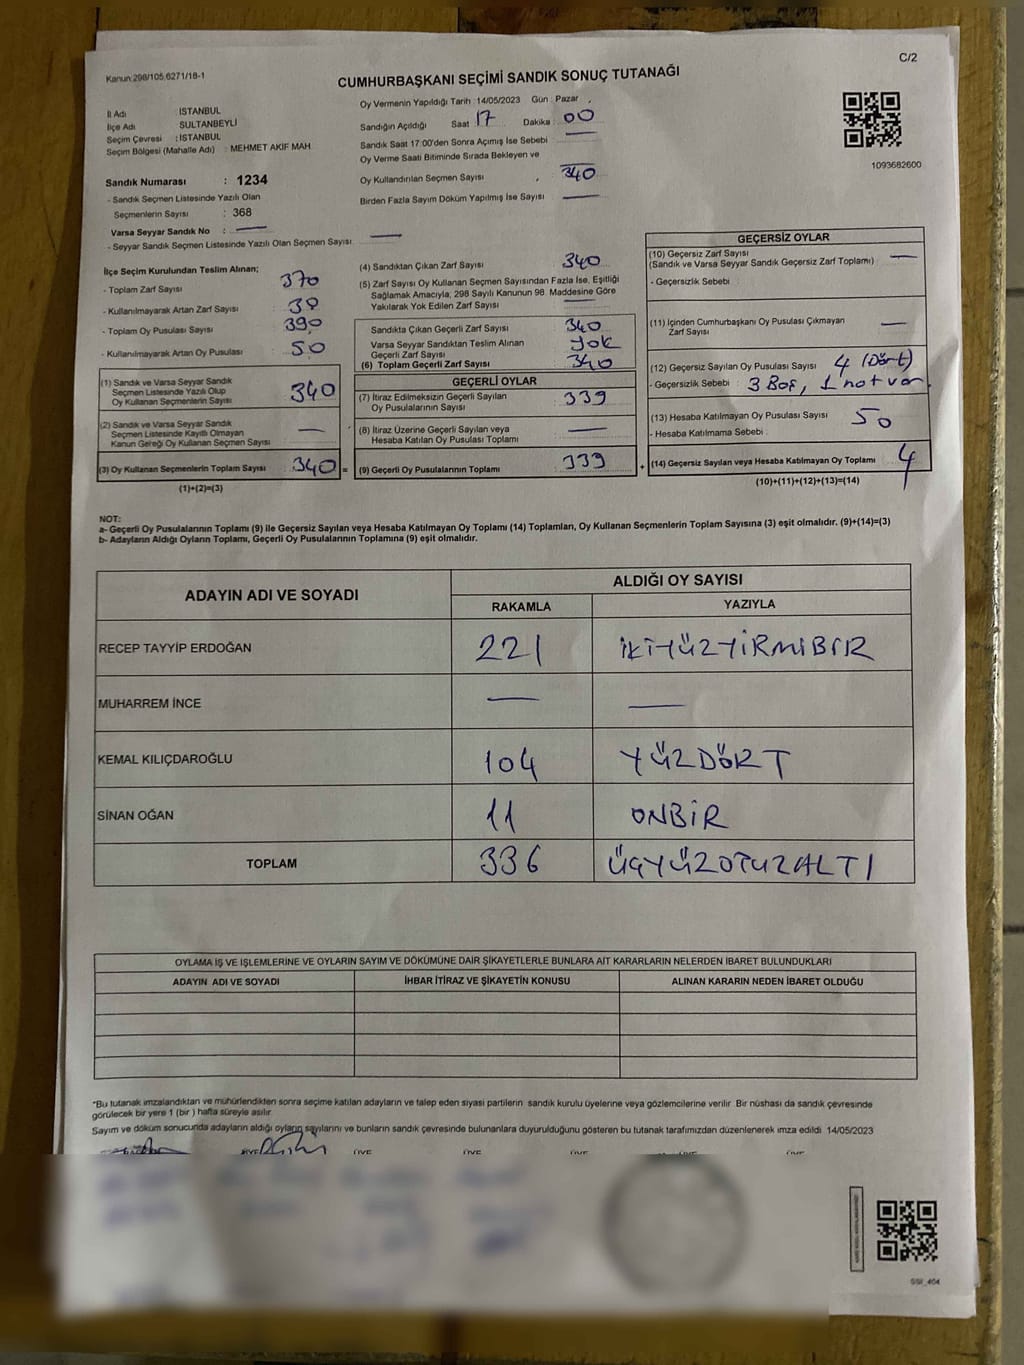 C/2
Kanun:298/105,6271/18-1
CUMHURBAŞKANI SEÇİMİ SANDIK SONUÇ TUTANAĞI
İl Adı : İSTANBUL
İlçe Adı : SULTANBEYLİ
Seçim Çevresi : İSTANBUL
Seçim Bölgesi (Mahalle Adı) : MEHMET AKİF MAH
Sandık Numarası : 1234
- Sandık Seçmen Listesinde Yazılı Olan
Seçmenlerin Sayısı : 368
Varsa Seyyar Sandık No : —
- Seyyar Sandık Seçmen Listesinde Yazılı Olan Seçmen Sayısı —
Oy Vermenin Yapıldığı Tarih : 14/05/2023 Gün : Pazar
Sandığın Açıldığı Saat 17 Dakika : 00
Sandık Saat 17:00'den Sonra Açımış İse Sebebi —
Oy Verme Saati Bitiminde Sırada Bekleyen ve
Oy Kullandırılan Seçmen Sayısı 340
Birden Fazla Sayım Döküm Yapılmış İse Sayısı —
1093682600
İlçe Seçim Kurulundan Teslim Alınan;
- Toplam Zarf Sayısı 370
- Kullanılmayarak Artan Zarf Sayısı : 30
- Toplam Oy Pusulası Sayısı 390
- Kullanılmayarak Artan Oy Pusulası 50
(1) Sandık ve Varsa Seyyar Sandık
Seçmen Listesinde Yazılı Olup
Oy Kullanan Seçmenlerin Sayısı 340
(2) Sandık ve Varsa Seyyar Sandık
Seçmen Listesinde Kayıtlı Olmayan
Kanun Gereği Oy Kullanan Seçmen Sayısı —
(3) Oy Kullanan Seçmenlerin Toplam Sayısı 340 =
(1)+(2)=(3)
(4) Sandıktan Çıkan Zarf Sayısı 340
(5) Zarf Sayısı Oy Kullanan Seçmen Sayısından Fazla İse, Eşitliği
Sağlamak Amacıyla, 298 Sayılı Kanunun 98. Maddesine Göre
Yakılarak Yok Edilen Zarf Sayısı —
Sandıkta Çıkan Geçerli Zarf Sayısı 340
Varsa Seyyar Sandıktan Teslim Alınan
Geçerli Zarf Sayısı Yok
(6) Toplam Geçerli Zarf Sayısı 340
GEÇERLİ OYLAR
(7) İtiraz Edilmeksizin Geçerli Sayılan
Oy Pusulalarının Sayısı 339
(8) İtiraz Üzerine Geçerli Sayılan veya
Hesaba Katılan Oy Pusulası Toplamı —
(9) Geçerli Oy Pusulalarının Toplamı 339 +
GEÇERSİZ OYLAR
(10) Geçersiz Zarf Sayısı
(Sandık ve Varsa Seyyar Sandık Geçersiz Zarf Toplamı) —
- Geçersizlik Sebebi :
(11) İçinden Cumhurbaşkanı Oy Pusulası Çıkmayan
Zarf Sayısı —
(12) Geçersiz Sayılan Oy Pusulası Sayısı 4 (Dört)
- Geçersizlik Sebebi : 3 Boş, 1 not var.
(13) Hesaba Katılmayan Oy Pusulası Sayısı 50
- Hesaba Katılmama Sebebi :
(14) Geçersiz Sayılan veya Hesaba Katılmayan Oy Toplamı 4
(10)+(11)+(12)+(13)=(14)
NOT:
a- Geçerli Oy Pusulalarının Toplamı (9) ile Geçersiz Sayılan veya Hesaba Katılmayan Oy Toplamı (14) Toplamları, Oy Kullanan Seçmenlerin Toplam Sayısına (3) eşit olmalıdır. (9)+(14)=(3)
b- Adayların Aldığı Oyların Toplamı, Geçerli Oy Pusulalarının Toplamına (9) eşit olmalıdır.
ADAYIN ADI VE SOYADI ALDIĞI OY SAYISI
RAKAMLA YAZIYLA
RECEP TAYYİP ERDOĞAN 221 İKİYÜZYİRMİBİR
MUHARREM İNCE — —
KEMAL KILIÇDAROĞLU 104 YÜZDÖRT
SİNAN OĞAN 11 ONBİR
TOPLAM 336 ÜÇYÜZOTUZALTI
OYLAMA İŞ VE İŞLEMLERİNE VE OYLARIN SAYIM VE DÖKÜMÜNE DAİR ŞİKAYETLERLE BUNLARA AİT KARARLARIN NELERDEN İBARET BULUNDUKLARI
ADAYIN ADI VE SOYADI İHBAR İTİRAZ VE ŞİKAYETİN KONUSU ALINAN KARARIN NEDEN İBARET OLDUĞU
*Bu tutanak imzalandıktan ve mühürlendikten sonra seçime katılan adayların ve talep eden siyasi partilerin sandık kurulu üyelerine veya gözlemcilerine verilir. Bir nüshası da sandık çevresinde
görülecek bir yere 1 (bir ) hafta süreyle asılır.
Sayım ve döküm sonucunda adayların aldığı oyların sayılarını ve bunların sandık çevresinde bulunanlara duyurulduğunu gösteren bu tutanak tarafımızdan düzenlenerek imza edildi. 14/05/2023
SSI_404